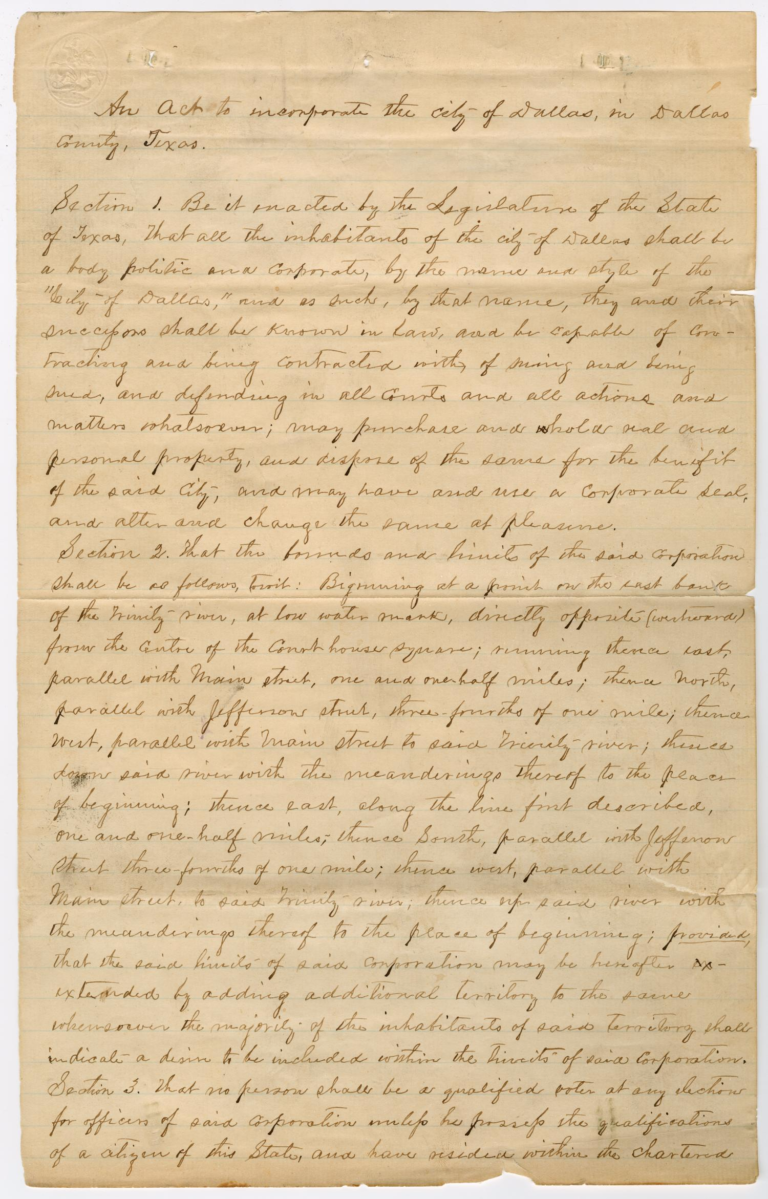 An Act to incorporate the city of Dallas, in Dallas
County, Texas.
Section 1. Be it enacted by the Legislature of the State
of Texas, That all the inhabitants of the city of Dallas shall be
a body politic and corporate, by the name and style of the
"City of Dallas," and as such, by that name, they and their
successors shall be known in Law, and be capable of con-
tracting and being contracted with, of suing and being
sued, and defending in all Courts and all actions and
matters whatsoever; may purchase and hold real and
personal property, and dispose of the same for the benefit
of the said City, and may have and use a corporate seal,
and alter and change the same at pleasure.
Section 2. That the bounds and limits of the said corporation
shall be as follows, towit: Beginning at a point on the east bank
of the Trinity river, at low water mark, directly opposite (westward)
from the centre of the Court house square; running thence east,
parallel with Main street, one and one-half miles; thence North,
parallel with Jefferson street, three-fourths of one mile; thence
West, parallel with Main street to said Trinity river; thence
down said river with the meanderings thereof to the place
of beginning; thence east, along the line first described,
one and one-half miles; thence South, parallel with Jefferson
street three-fourths of one mile; thence west, parallel with
Main street, to said Trinity river; thence up said river with
the meanderings thereof to the place of beginning; provided,
that the said limits of said corporation may be hereafter ex-
extended by adding additional territory to the same
whensoever the majority of the inhabitants of said territory shall
indicate a desire to be included within the limits of said corporation.
Section 3. That no person shall be a qualified voter at any election
for officers of said corporation unless he possess the qualifications
of a citizen of this State, and have resided within the chartered